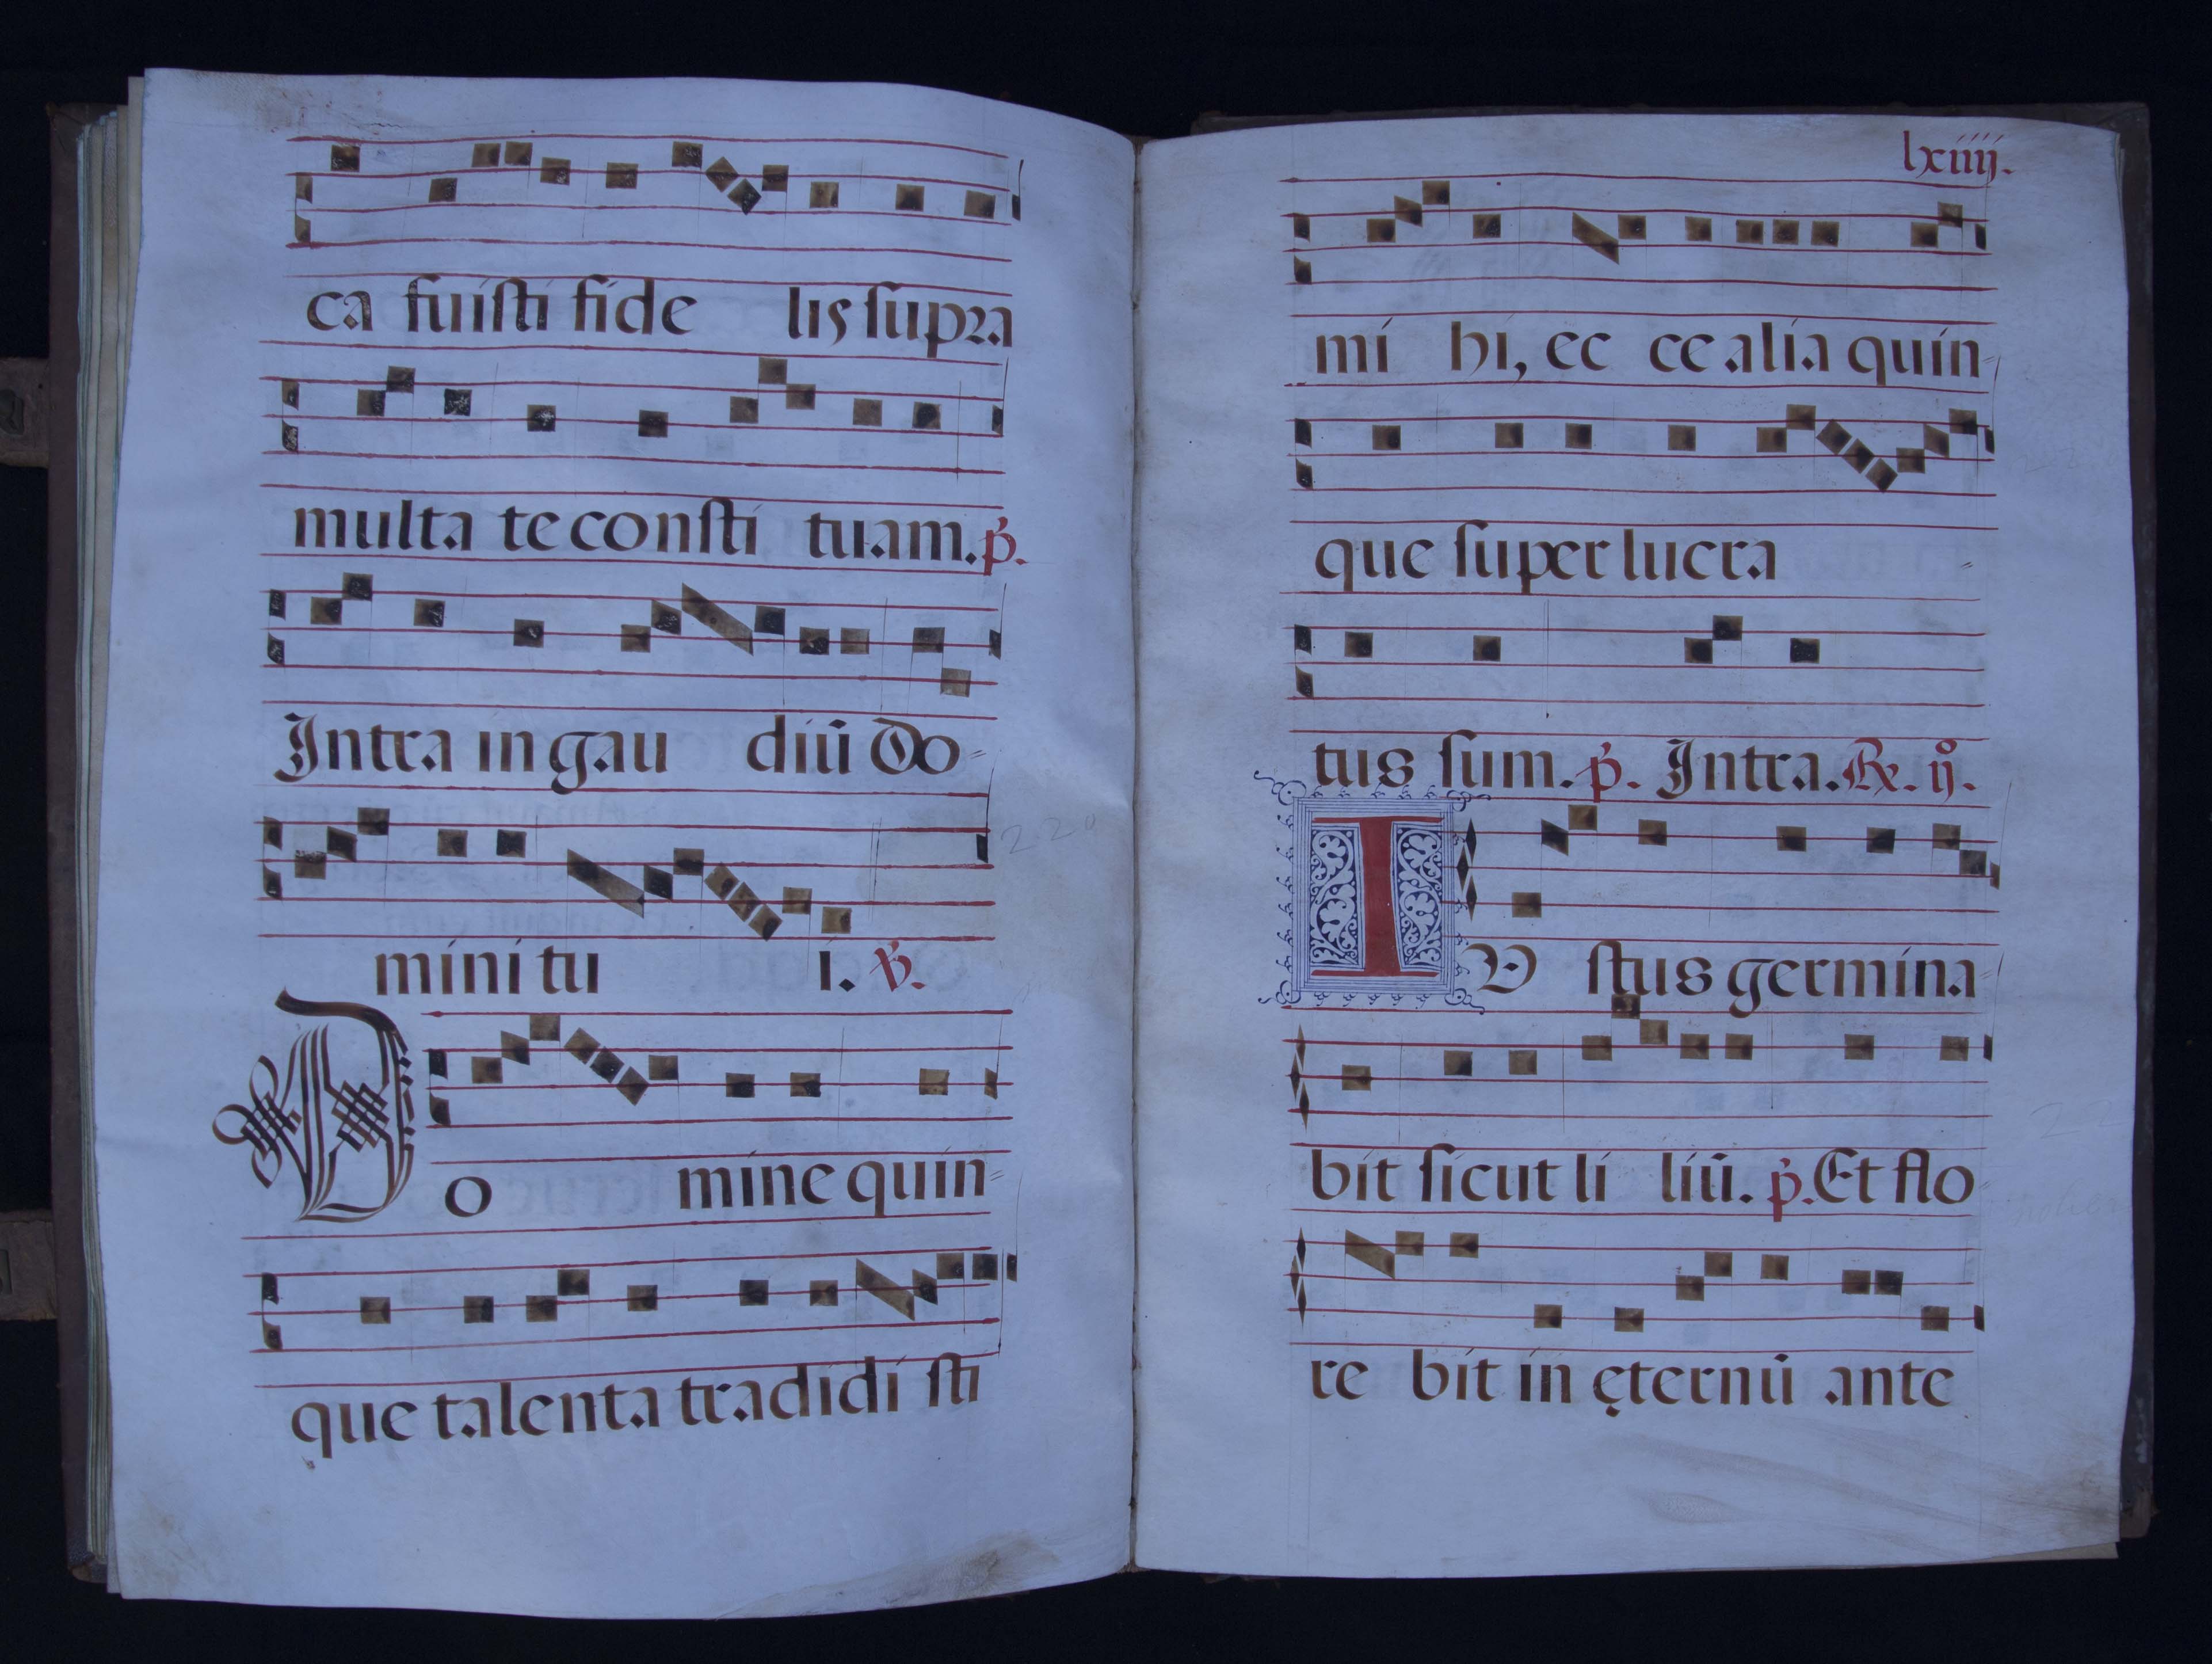 ca fuisti fide lis supra
multa te consti tuam. p̄.
Intra in gau diū Do-
mini tu i. ℣.
Do mine quin-
que talenta tradidi sti
lxiiij.
mi hi, ec ce alia quin-
que super lucra-
tus sum. p̄. Intra. ℞. ijº.
IV stus germina
bit sicut li liū. p̄. Et flo
re bit in ęternū ante